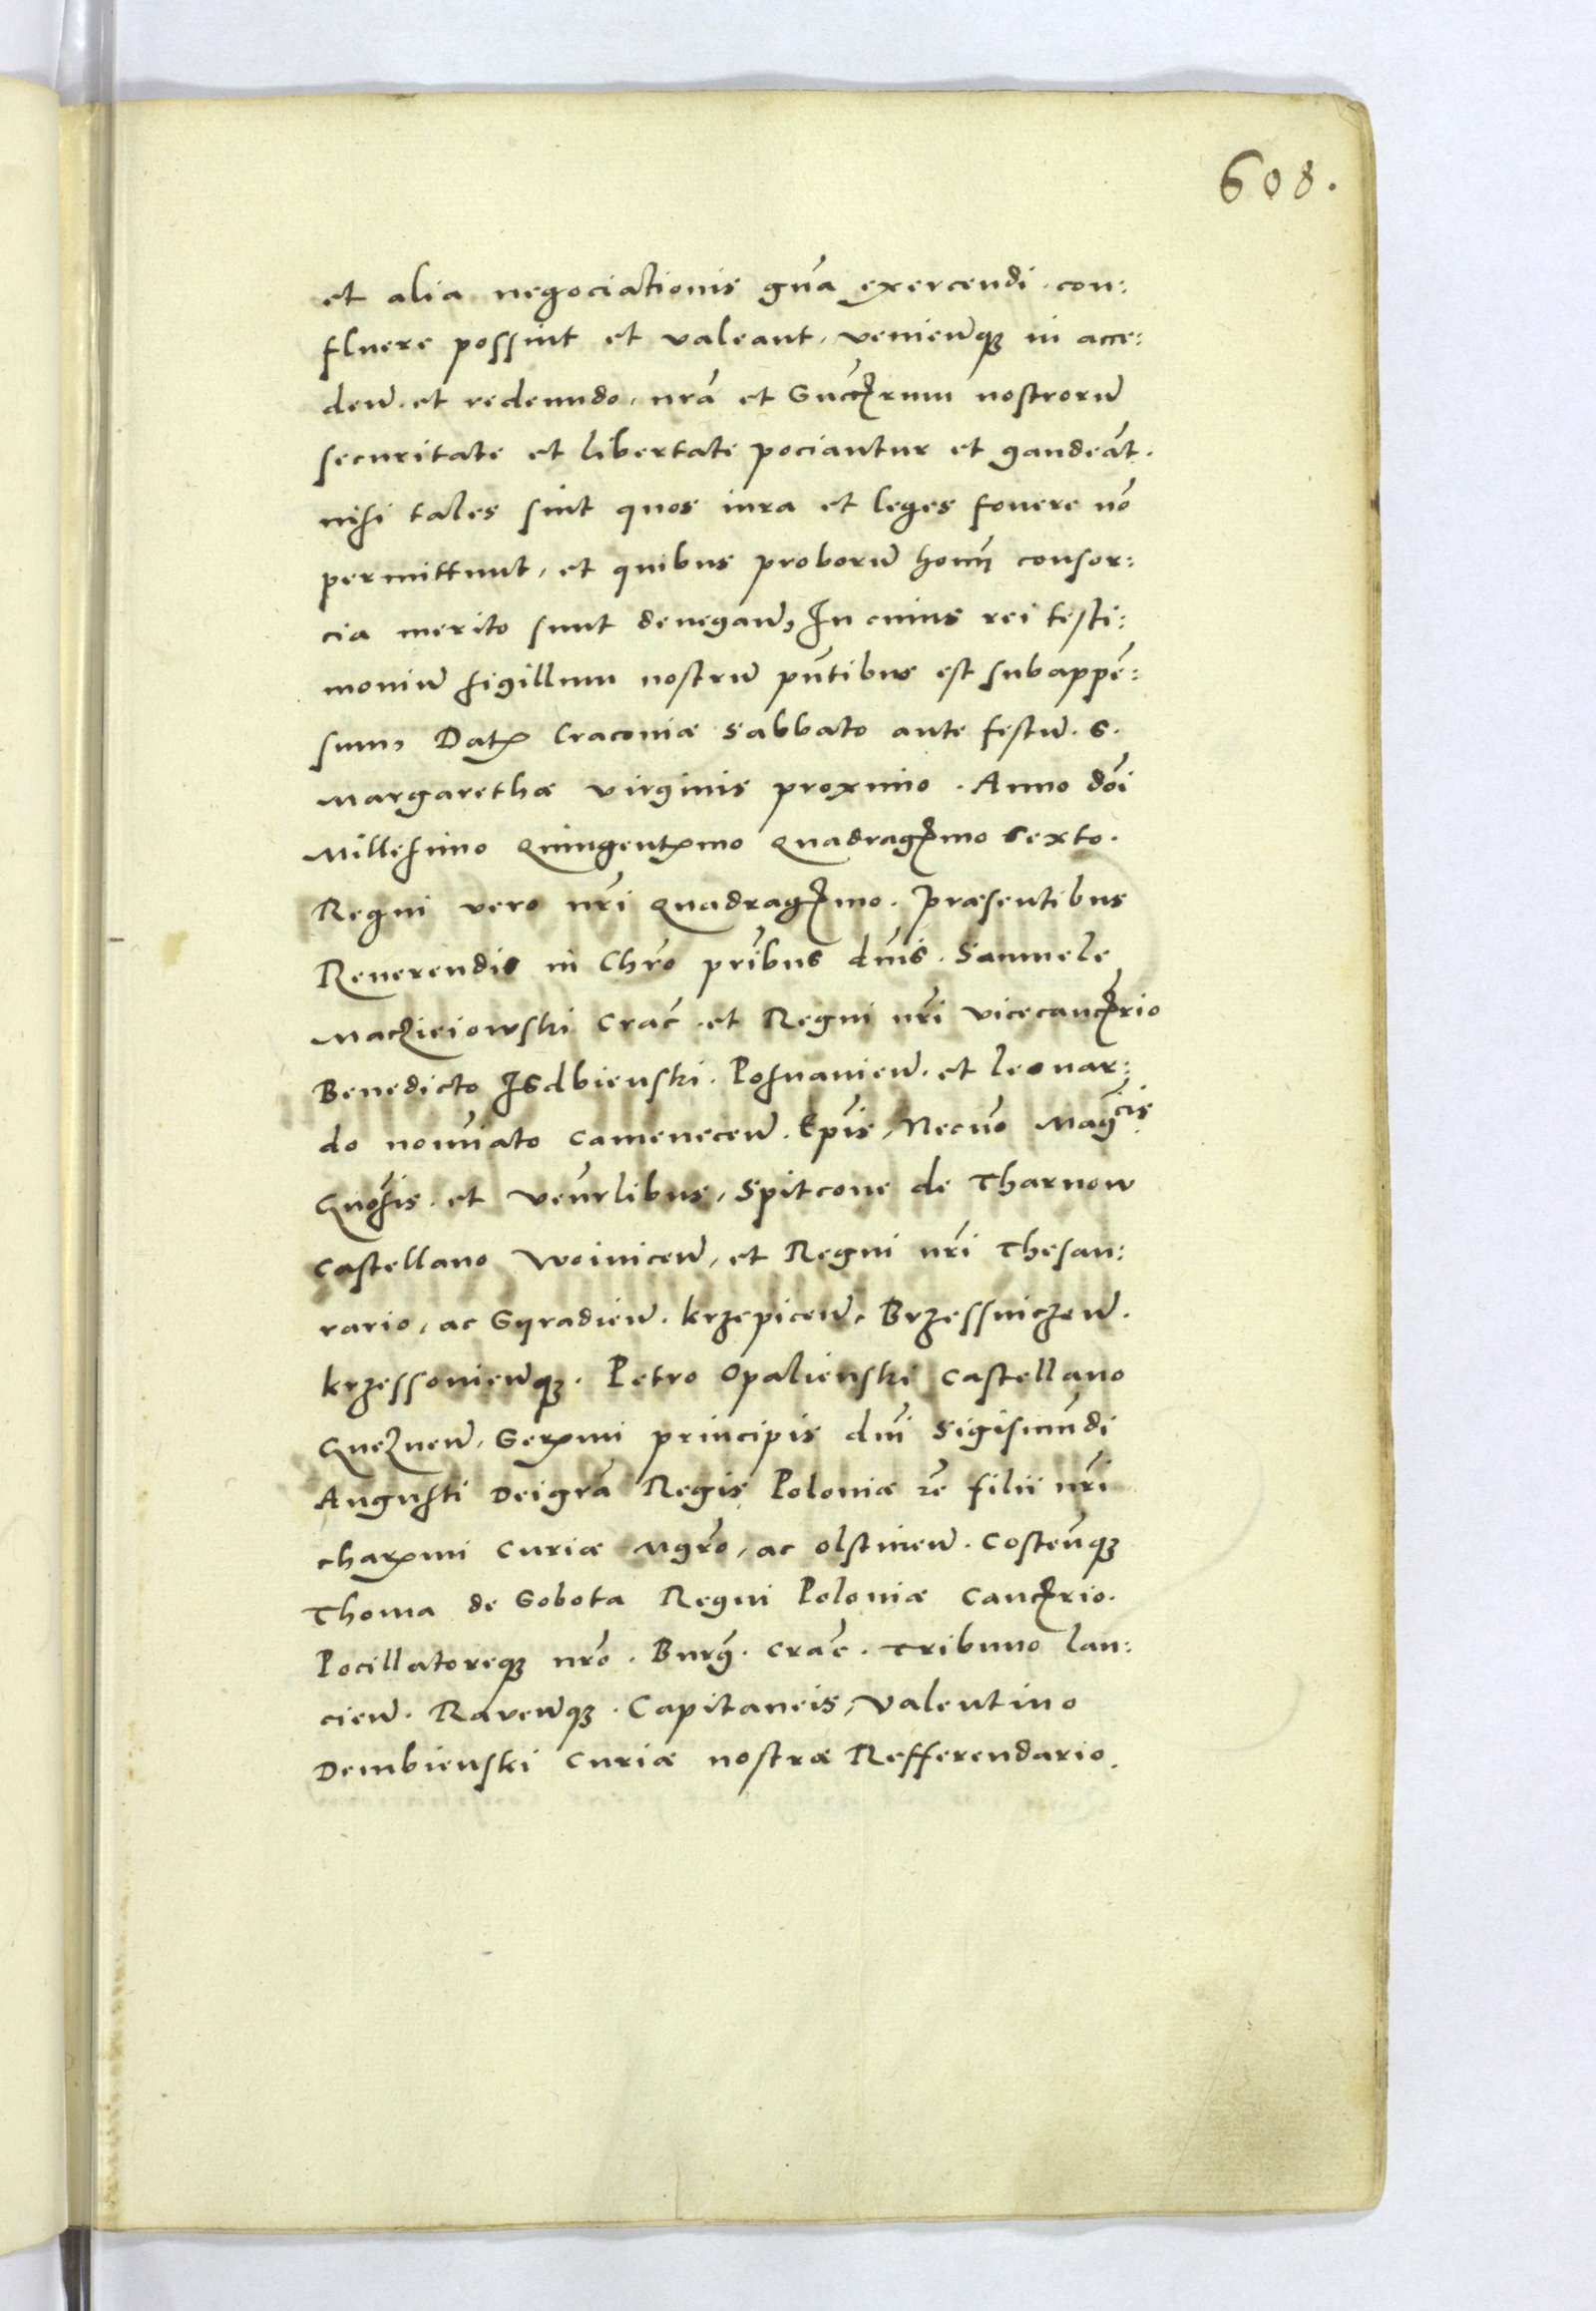 608.
et alia negociationis gña exercendi con:
fluere possint et valeant, venienꝗꝫ in acce:
den̄. et redeundo, nrã et Succꝭrum nostrorū
securitate et libertate pociantur et gaudeãt.
nisi tales sint quos iura et leges fovere nō
permittunt, et quibus proborū homı̄ consor:
cia merito sunt denegan̄, In cuius rei testi:
moniū sigillum nostrū pñtibus est subappẽ:
sum, Datꝭ Cracoviæ Sabbato ante festū. S.
Margarethæ virginis proximo. Anno dñi
Millesimo Quingentꝭmo Quadragꝭmo sexto.
Regni vero nr̃i Quadragꝭmo. Præsentibus
Reverendis in Chr̃o pr̃ibus dñis. Samuele
Maczieiowski Crac̃. et Regni nr̃i vicecancꝭrio
Benedicto Isdbienski. Posnanien̄. et Leonar:
do noı̃ato Camenecen̄. Ep̃is, Necnõ Mag̃cis
Gñosis. et Veñrlibus, Spitcone de Tharnow
Castellano Woinicen̄, et Regni nr̃i Thesau:
rario, ac Syradien̄. Krzepicen̄, Brzessniczen̄.
Krzessonienꝗꝫ. Petro Opalienski Castellano
Gneznen̄, Serꝭmi principis dñi Sigismũdi
Augusti Deigrã Regis Poloniæ rẽ filii nr̃i
charꝭmi Curiæ Mgr̃o, ac Olstinen̄. Costeñꝗꝫ
Thoma de Sobota Regni Poloniæ Cancꝭrio.
Pocillatoreꝗꝫ nr̃o. Burg̃. Crac̃. Tribuno Lan:
cien̄. Ravenꝗꝫ. Capitaneis, Valentino
Dembienski Curiæ nostræ Refferendario.